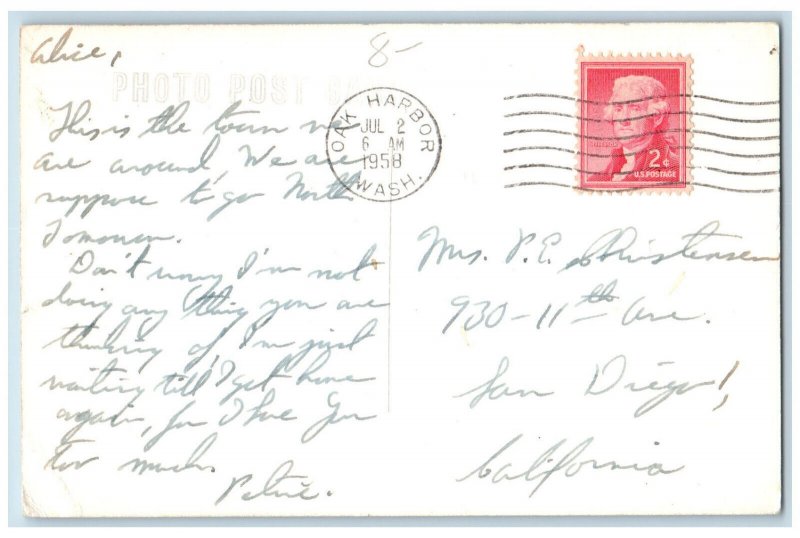 Alice,
8-
PHOTO POST CARD
This is the town we
are around, We are
suppose to go North
Tomorrow.
Don't worry I'm not
doing any thing you are
thinking of, I'm just
waiting till I get home
again, for I love You
Too much.
Petie.
OAK HARBOR
JUL 2
6 AM
1958
WASH.
2¢
U.S. POSTAGE
Mrs. P.E. Christensen
930-11th Ave.
San Diego 1,
California